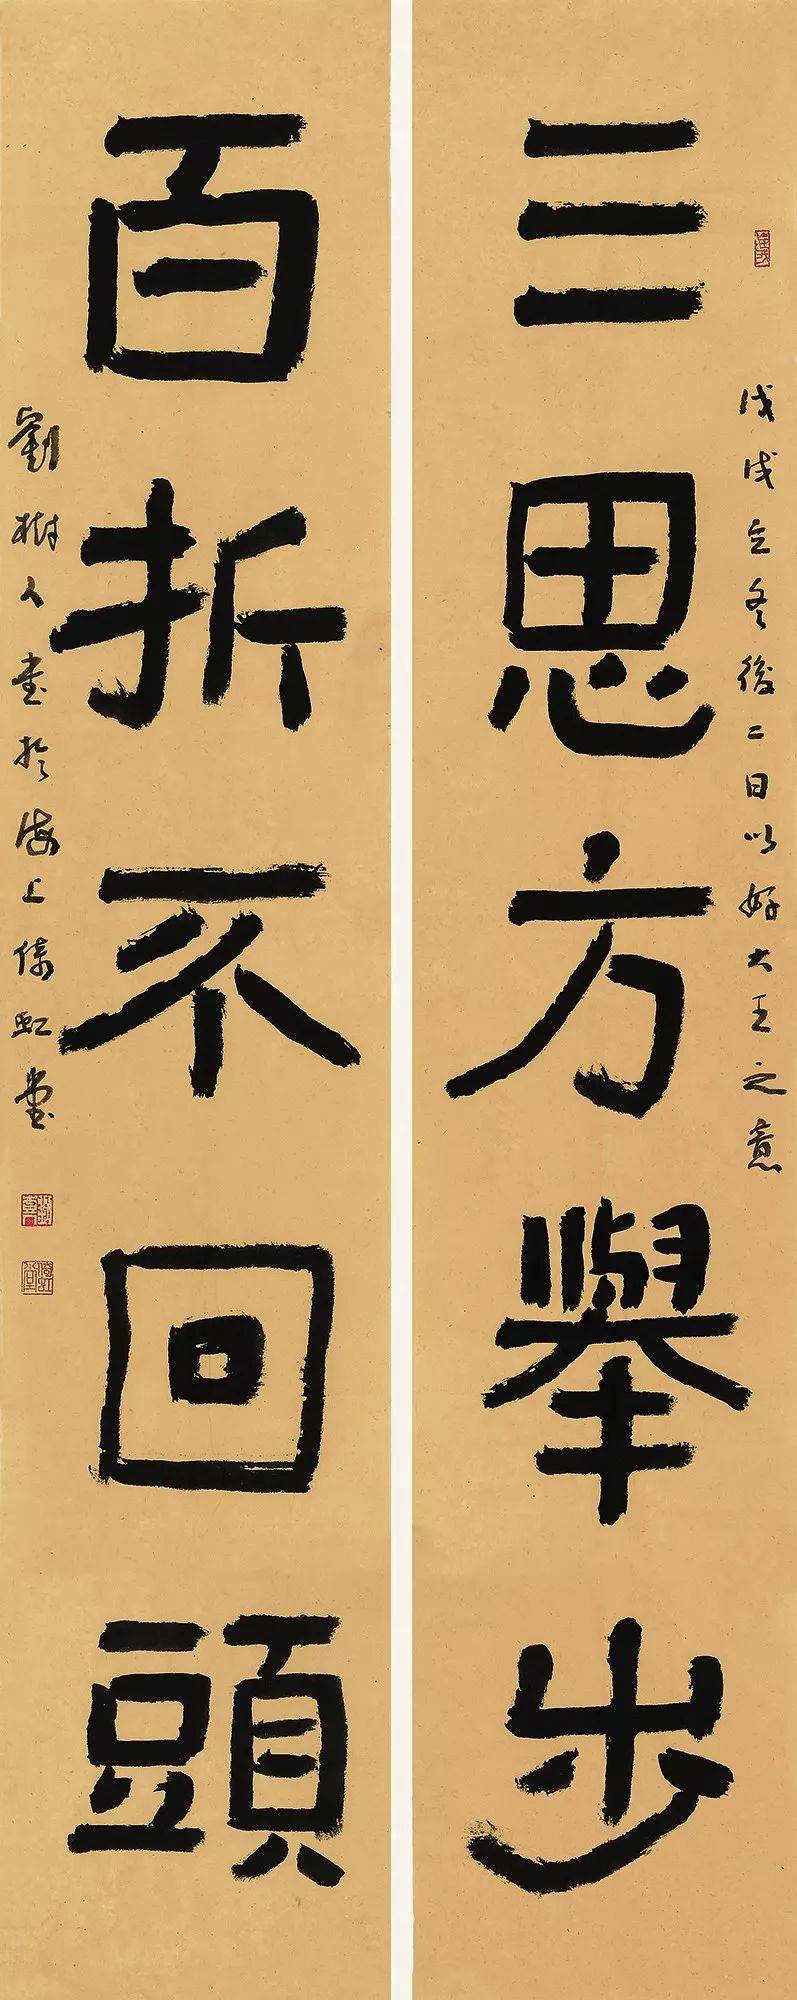 三思方舉步
戊戌立冬後二日以好大王之意
百折不回頭
劉樹人書於海上倚虹堂